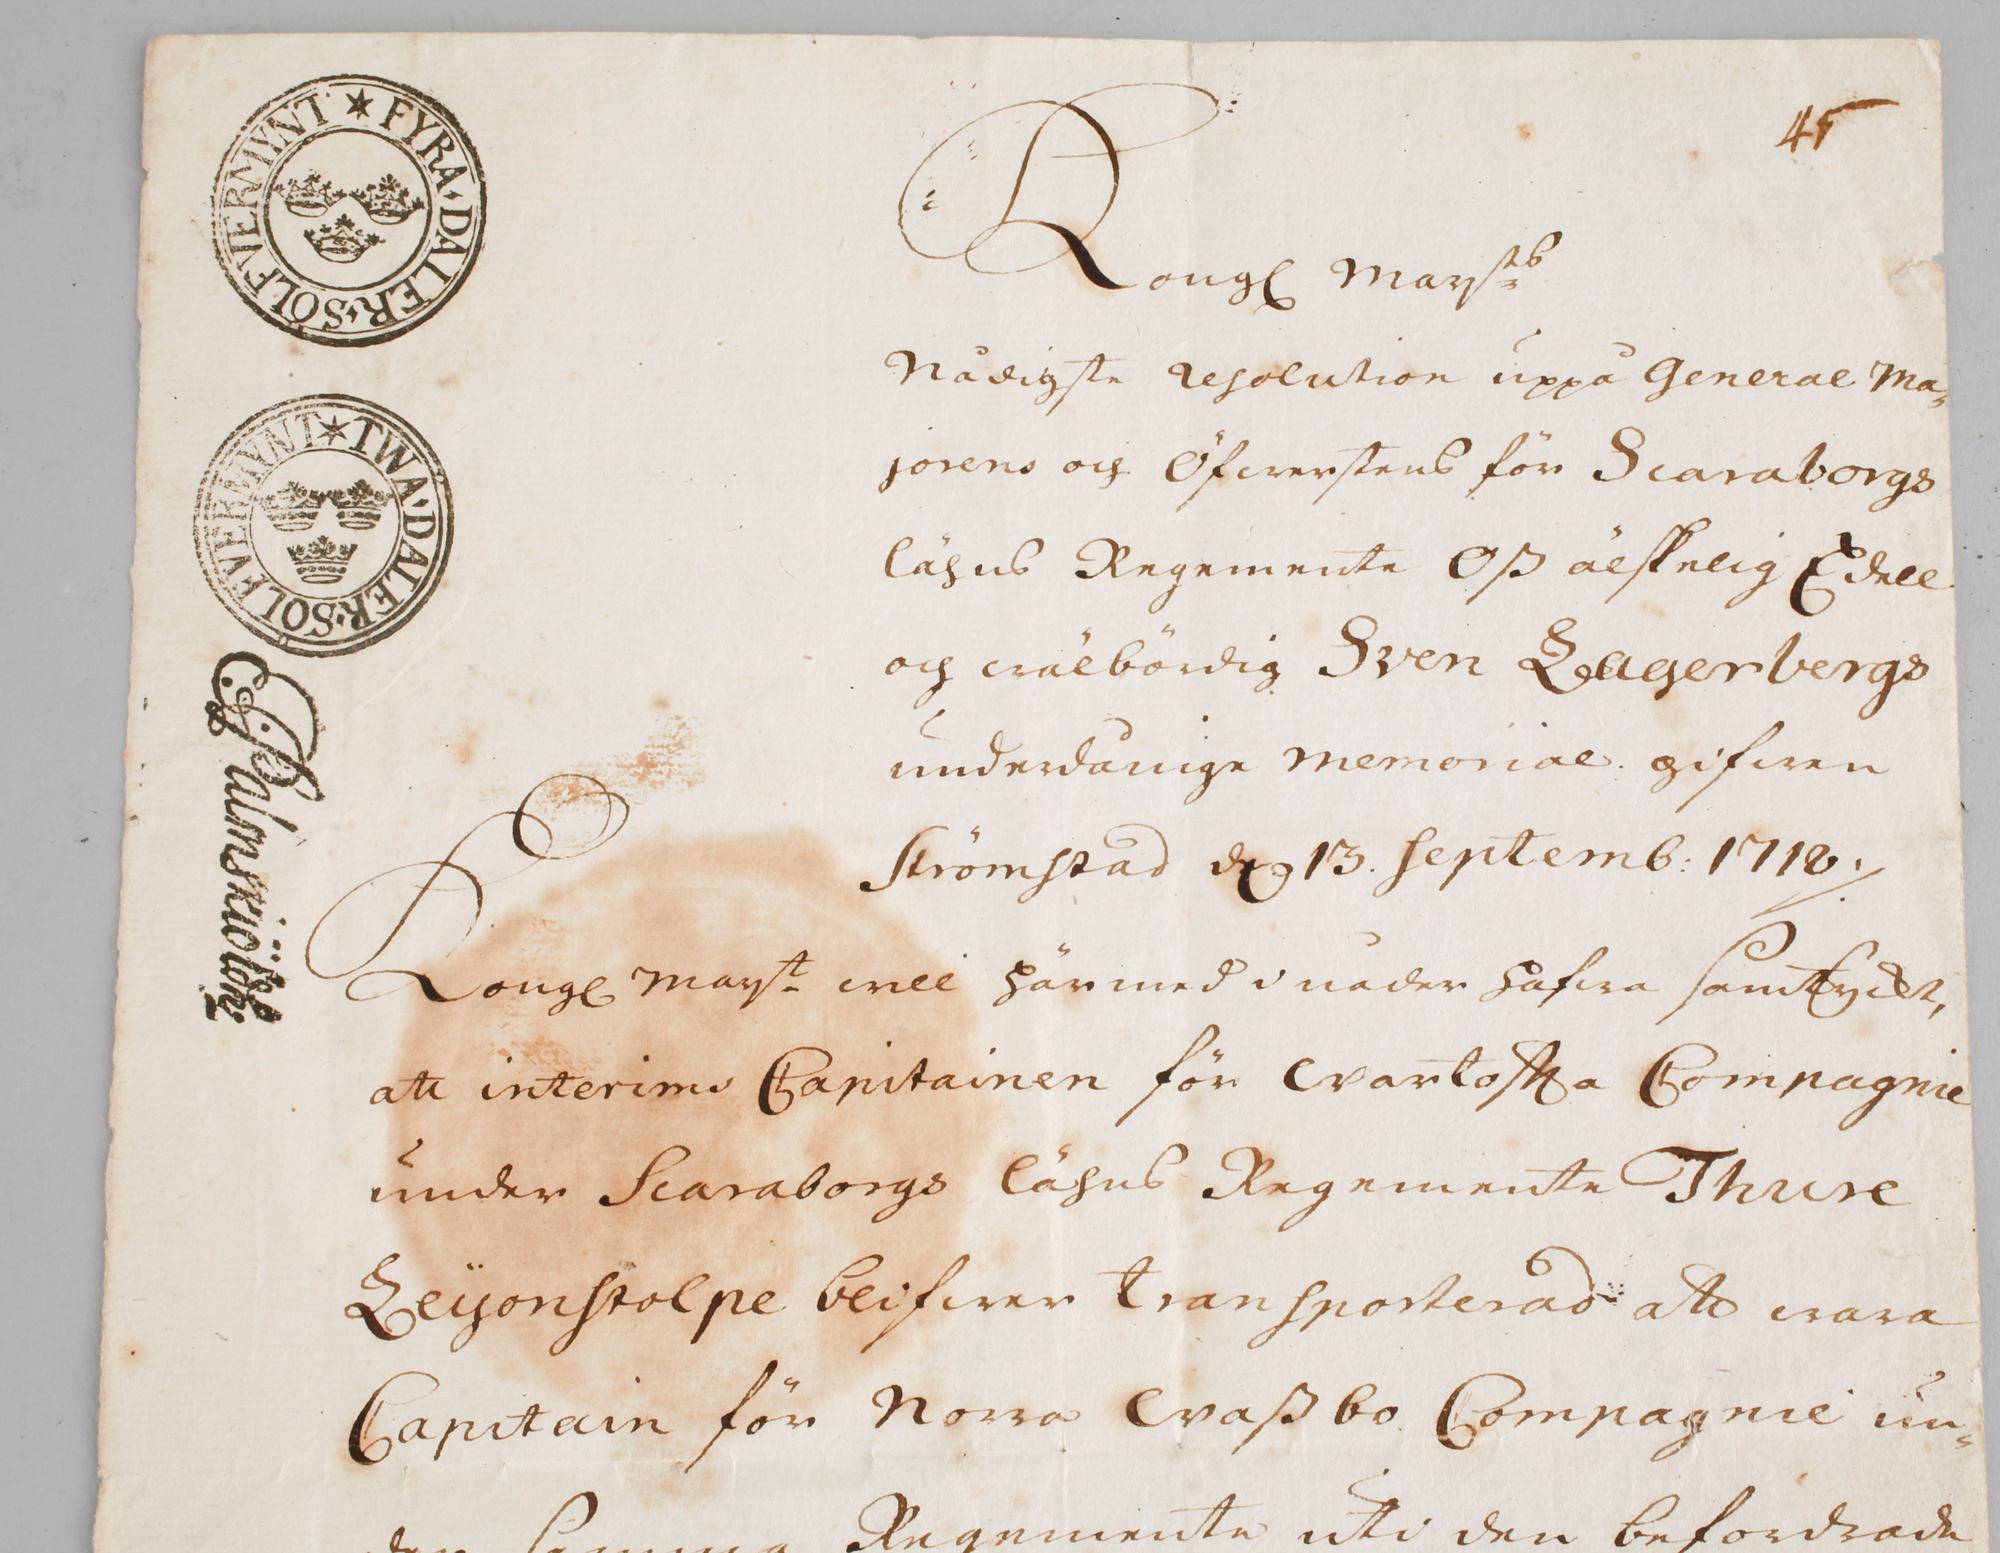 FYRA · DALER · SÖLFVERMYNT
TWA · DALER · SÖLFVERMYNT
Palmskiöldh
45
Kongl May:ts
Nådigste resolution uppå General Ma=
jorens och Öfwerstens för Scaraborgs
lähns Regemente Oß älskelig Edell
och wälbördig Sven Lagerbergs
underdånige memorial. gifwen
Strömstad d. 13. Septemb: 1718.
Kongl May:t will härmed i nåder hafwa samtyckt,
att interims Capitainen för Wartofta Compagnie
under Scaraborgs lähns Regemente Thure
Leijonstolpe blifwer transporterad att wara
Capitain för Norra Waßbo Compagnie un=
der samma Regemente uti den befordrade